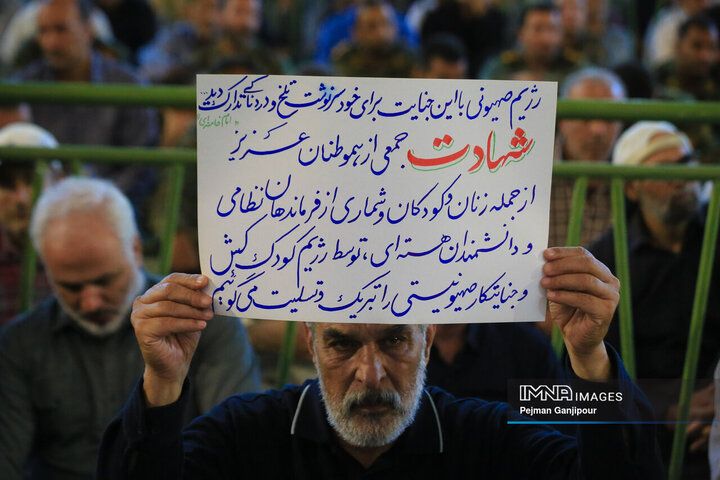 رژیم صهیونی با این جنایت برای خود سرنوشت تلخ و دردناکی تدارک دید.
امام خامنه‌ای
شهادت جمعی از هموطنان عزیز
از جمله زنان و کودکان و شماری از فرماندهان نظامی
و دانشمندان هسته‌ای، توسط رژیم کودک کش
و جنایتکار صهیونیستی را تبریک و تسلیت می‌گوئیم
IMNA IMAGES
Pejman Ganjipour